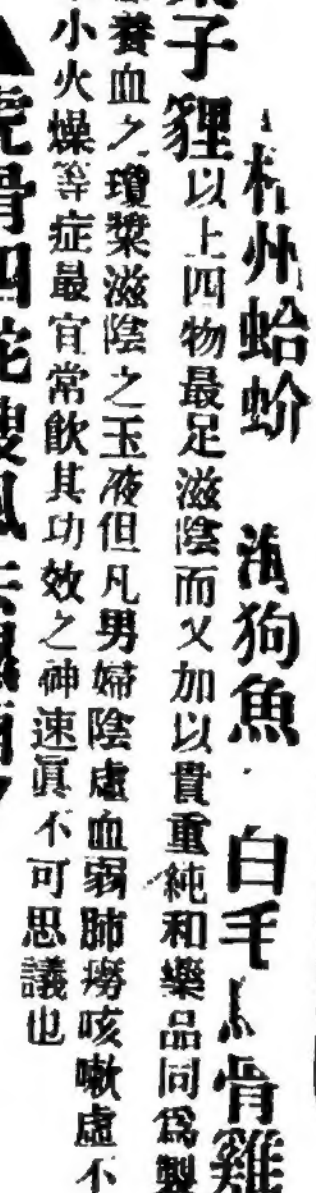 梧州蛤蚧 海狗魚 白毛烏骨雞
子貍以上四物最足滋陰而又加以貴重純和藥品同爲製
養血之瓊漿滋陰之玉液但凡男婦陰虛血弱肺癆咳嗽虛不
小火燥等症最宜常飲其功效之神速眞不可思議也
虎骨四蛇